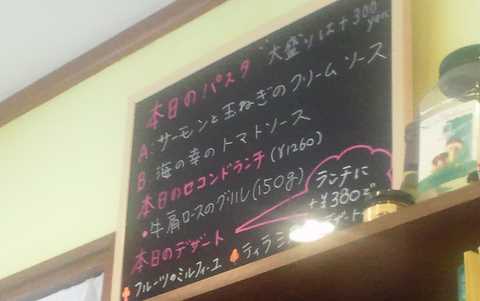 本日のパスタ 大盛りは+300yen
A：サーモンと玉ねぎのクリームソース
B：海の幸のトマトソース
本日のセコンドランチ(¥1260)
・牛肩ロースのグリル(150g)
ランチに
+¥380で。
デザート
本日のデザート
フルーツのミルフィーユ ティラミ